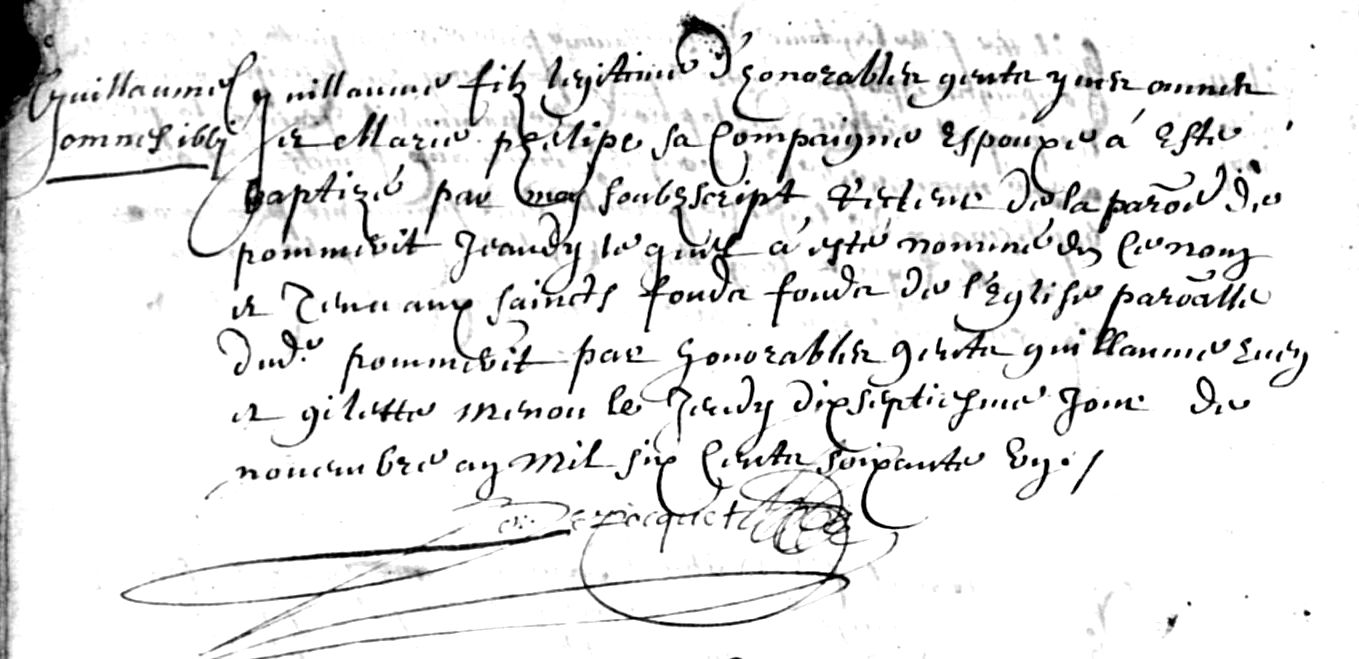 Guillaume
omnes 1661
Guillaume filz legitime d'honorables gents yves omnes
et Marie phelipe sa Compaigne Espouxe á Esté
baptizé par moy soubzscript Recteur de la paroē de
pommerit Jeaudy lequel á esté nommé du Ce nom
et Tenu aux saincts fonds fonds de l'Eglise paroālle
dud. pommerit par honorables gents guillaume
et gilette menou le Jeudy dixseptiesme Jour de
novembre an Mil six Cents soixante un./